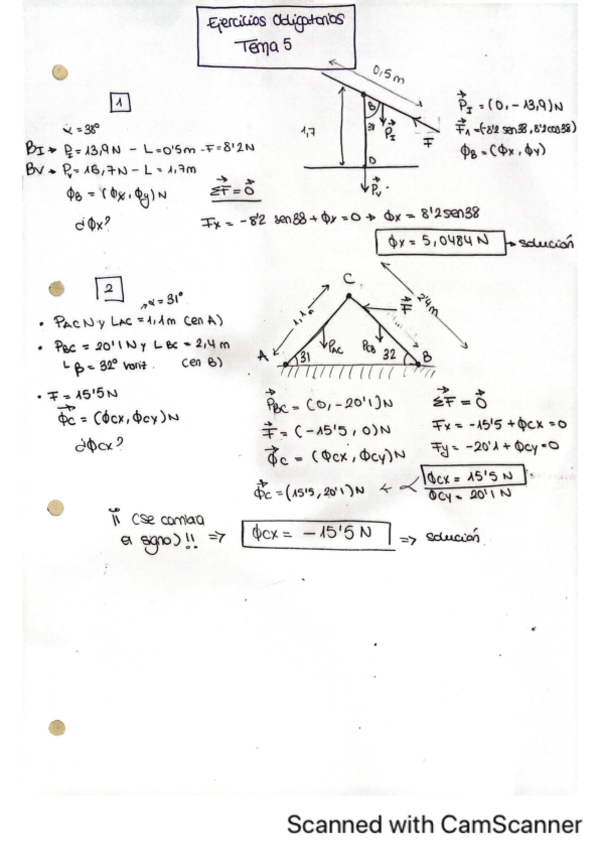 Ejercicios Obligatorios
Tema 5
0,5m
1
α = 38°
BI → PI = 13,9N - L=0'5m - F=8'2N
BV → Pv = 16,7N - L = 1,7m
ϕB = (ϕx, ϕy)N
ΣF = 0
¿ϕx?
1,7
B
38
PI
F
D
Pv
PI = (0, -13,9)N
F1 = (-8'2 sen38, 8'2cos38)
ϕB = (ϕx, ϕy)
Fx = -8'2 sen38 + ϕx = 0 → ϕx = 8'2sen38
ϕx = 5,0484 N → solución
2
α = 31°
• PAC N y LAC = 1,1m (en A)
• PBC = 20'1N y LBC = 2,4m
β = 32° (en B)
• F = 15'5N
ϕC = (ϕcx, ϕcy)N
¿ϕcx?
C
1,1m
F
2'4m
A
31
PAC
PCB
32
B
PBC = (0, -20'1)N
F = (-15'5, 0)N
ϕC = (ϕcx, ϕcy)N
ϕC = (15'5, 20'1)N
ΣF = 0
Fx = -15'5 + ϕcx = 0
Fy = -20'1 + ϕcy = 0
ϕcx = 15'5 N
ϕcy = 20'1 N
¡¡ (Se cambia
el signo)!! =>
ϕcx = -15'5 N => solución
Scanned with CamScanner